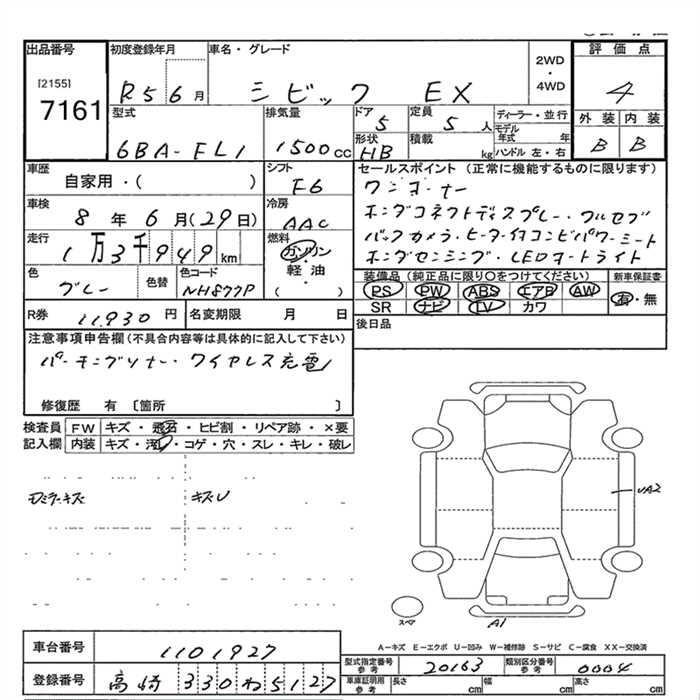 出品番号 初度登録年月 車名・グレード 2WD・4WD 評価点
[2155]
7161 R5 6月 シビック EX 4
型式 排気量 ドア 5 定員 5人 ディーラー・並行 外装 内装
6BA-FL1 1500cc 形状 HB 積載 kg モデル年式 年 ハンドル 左・右 B B
車歴 シフト セールスポイント(正常に機能するものに限ります)
自家用・( ) F6 ワンオーナー
車検 冷房 ホンダコネクトディスプレー・フルセグ
8年 6月(29日) AAC バックカメラ・ヒーター付コンビパワーシート
走行 燃料 ホンダセンシング・LEDオートライト
1万3千949km ガソリン・軽油・( )
色 色替 色コード 装備品(純正品に限り〇をつけてください) 新車保証書
グレー NH877P PS PW ABS エアB AW 有・無
R券 11,930円 名変期限 月 日 SR ナビ TV カワ
注意事項申告欄(不具合内容等は具体的に記入して下さい) 後日品
ワイヤレス充電
修復歴 有 [箇所 ]
検査員 FW キズ・飛石・ヒビ割・リペア跡・×要
記入欄 内装 キズ・汚・コゲ・穴・スレ・キレ・破レ
キズU
UA2
スペア A1
A-キズ E-エクボ U-凹み W-補修跡 S-サビ C-腐食 XX-交換済
車台番号 1101927 型式指定番号 参考 20163 類別区分番号 参考 0004
登録番号 高崎 330わ5127 車庫証明用 参考 長さ cm 幅 cm 高さ cm